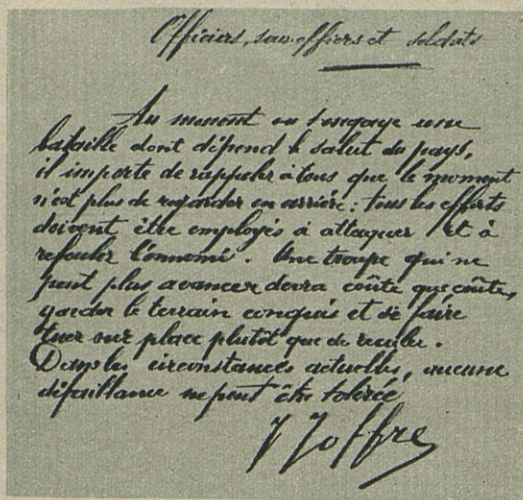 Officiers, sous-officiers et soldats
Au moment où s'engage une
bataille dont dépend le salut du pays,
il importe de rappeler à tous que le moment
n'est plus de regarder en arrière : tous les efforts
doivent être employés à attaquer et à
refouler l'ennemi. Une troupe qui ne
peut plus avancer devra coûte que coûte,
garder le terrain conquis et se faire
tuer sur place plutôt que de reculer.
Dans les circonstances actuelles, aucune
défaillance ne peut être tolérée
J Joffre